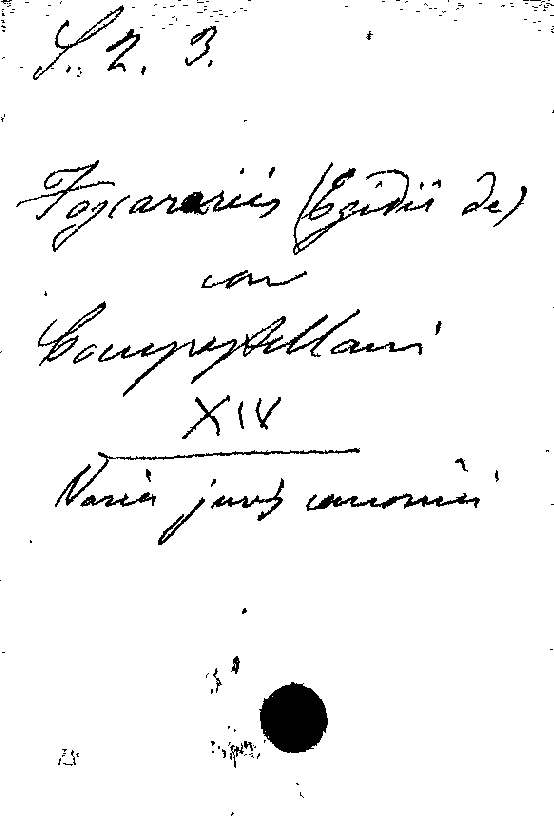 S. 2. 3.
Foscarariis (Egidii de)
can
Compostellani
XIV
Varia juris canonici